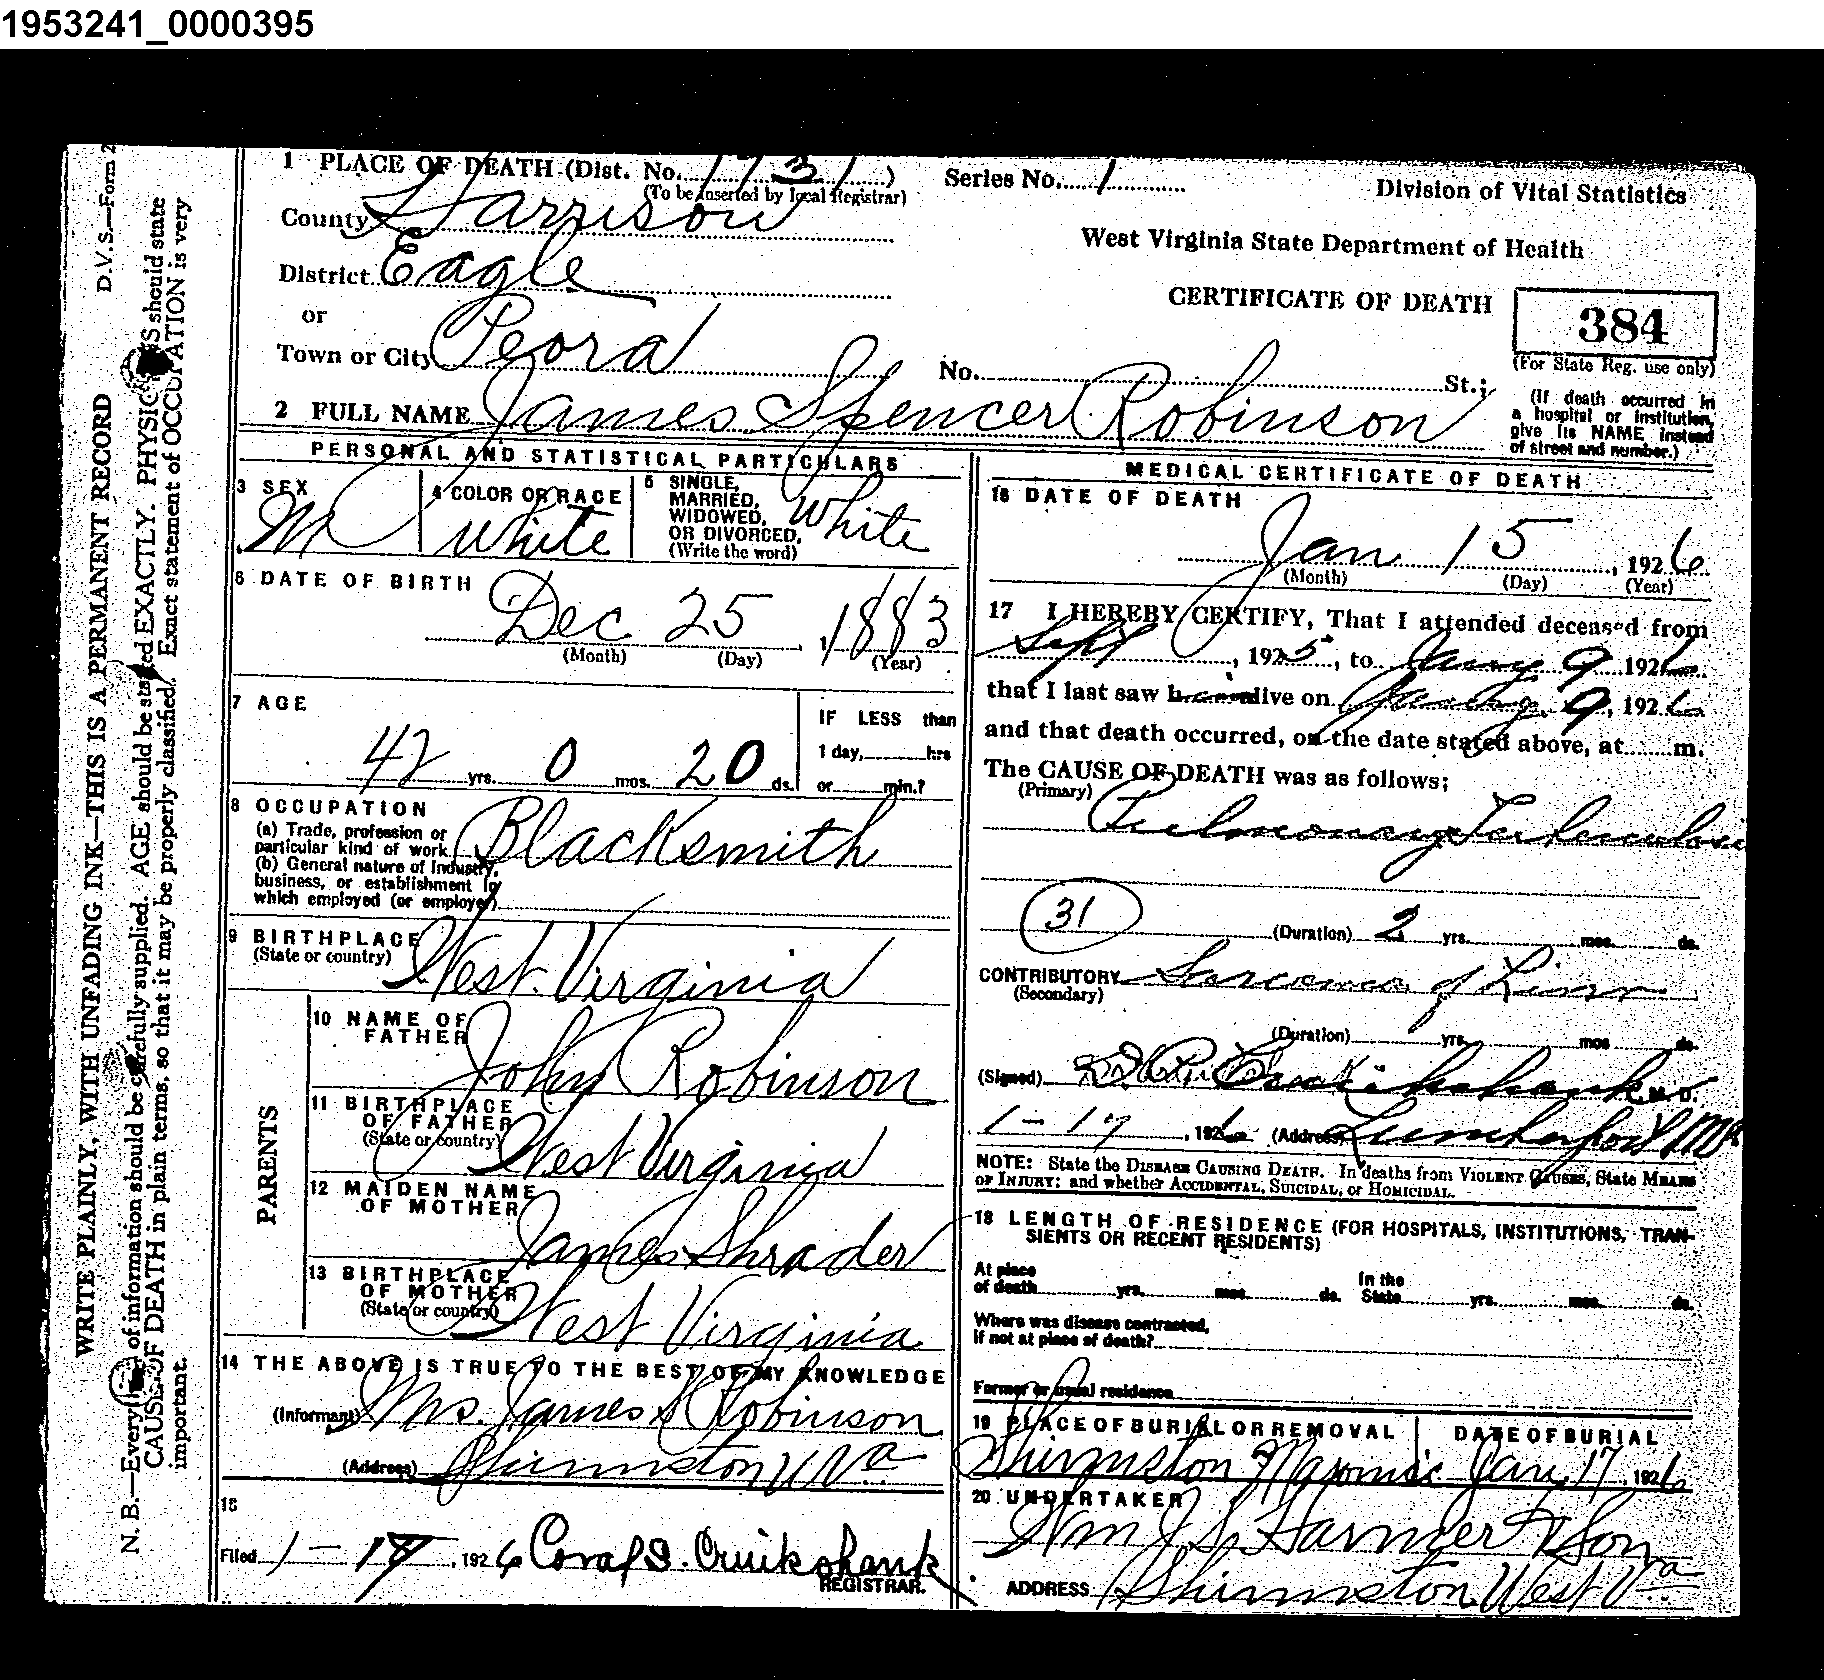 1953241_0000395
D.V.S.—Form 2
WRITE PLAINLY, WITH UNFADING INK—THIS IS A PERMANENT RECORD
N. B.—Every of information should be carefully supplied. AGE should be stated EXACTLY. PHYSICIANS should state
CAUSE OF DEATH in plain terms, so that it may be properly classified. Exact statement of OCCUPATION is very
important.
1 PLACE OF DEATH (Dist. No. 1731)
(To be inserted by local Registrar)
Series No. 1
Division of Vital Statistics
County Harrison
West Virginia State Department of Health
District Eagle
CERTIFICATE OF DEATH
384
(For State Reg. use only)
or
Town or City Peora
No. St.;
(If death occurred in
a hospital or institution,
give its NAME instead
of street and number.)
2 FULL NAME James Spencer Robinson
PERSONAL AND STATISTICAL PARTICULARS
3 SEX
M
4 COLOR OR RACE
White
5 SINGLE,
MARRIED,
WIDOWED,
OR DIVORCED,
(Write the word)
White
6 DATE OF BIRTH
Dec 25, 1883
(Month) (Day) (Year)
7 AGE
42 yrs. 0 mos. 20 ds.
IF LESS than
1 day, hrs
or min.?
8 OCCUPATION
(a) Trade, profession or
particular kind of work Blacksmith
(b) General nature of Industry,
business, or establishment in
which employed (or employer)
9 BIRTHPLACE
(State or country) West Virginia
PARENTS
10 NAME OF
FATHER John Robinson
11 BIRTHPLACE
OF FATHER
(State or country) West Virginia
12 MAIDEN NAME
OF MOTHER James Shrader
13 BIRTHPLACE
OF MOTHER
(State or country) West Virginia
14 THE ABOVE IS TRUE TO THE BEST OF MY KNOWLEDGE
(Informant) Mrs. James S Robinson
(Address) Shinnston W Va
15
Filed 1-17, 1926 Coral I. Cruikshank
REGISTRAR.
MEDICAL CERTIFICATE OF DEATH
16 DATE OF DEATH
Jan 15, 1926
(Month) (Day) (Year)
17 I HEREBY CERTIFY, That I attended deceased from
Sept, 1925, to Jany 9 1926
that I last saw him alive on Jany 9, 1926
and that death occurred, on the date stated above, at m.
The CAUSE OF DEATH was as follows;
(Primary) Pulmonary Tuberculosis
31
(Duration) 2 yrs. mos. ds.
CONTRIBUTORY Sarcoma of Liver
(Secondary)
(Duration) yrs. mos. ds.
(Signed) Cruikshank M. D.
1-17, 1926 (Address) Lumberport W Va
NOTE: State the DISEASE CAUSING DEATH. In deaths from VIOLENT CAUSES, State MEANS
OF INJURY; and whether ACCIDENTAL, SUICIDAL, or HOMICIDAL.
18 LENGTH OF RESIDENCE (FOR HOSPITALS, INSTITUTIONS, TRAN-
SIENTS OR RECENT RESIDENTS)
At place
of death yrs. mos. ds.
In the
State yrs. mos. ds.
Where was disease contracted,
if not at place of death?
Former or usual residence
19 PLACE OF BURIAL OR REMOVAL
Shinnston Masonic
DATE OF BURIAL
Jan. 17, 1926
20 UNDERTAKER
Wm J S Harmer & Son
ADDRESS Shinnston West Va